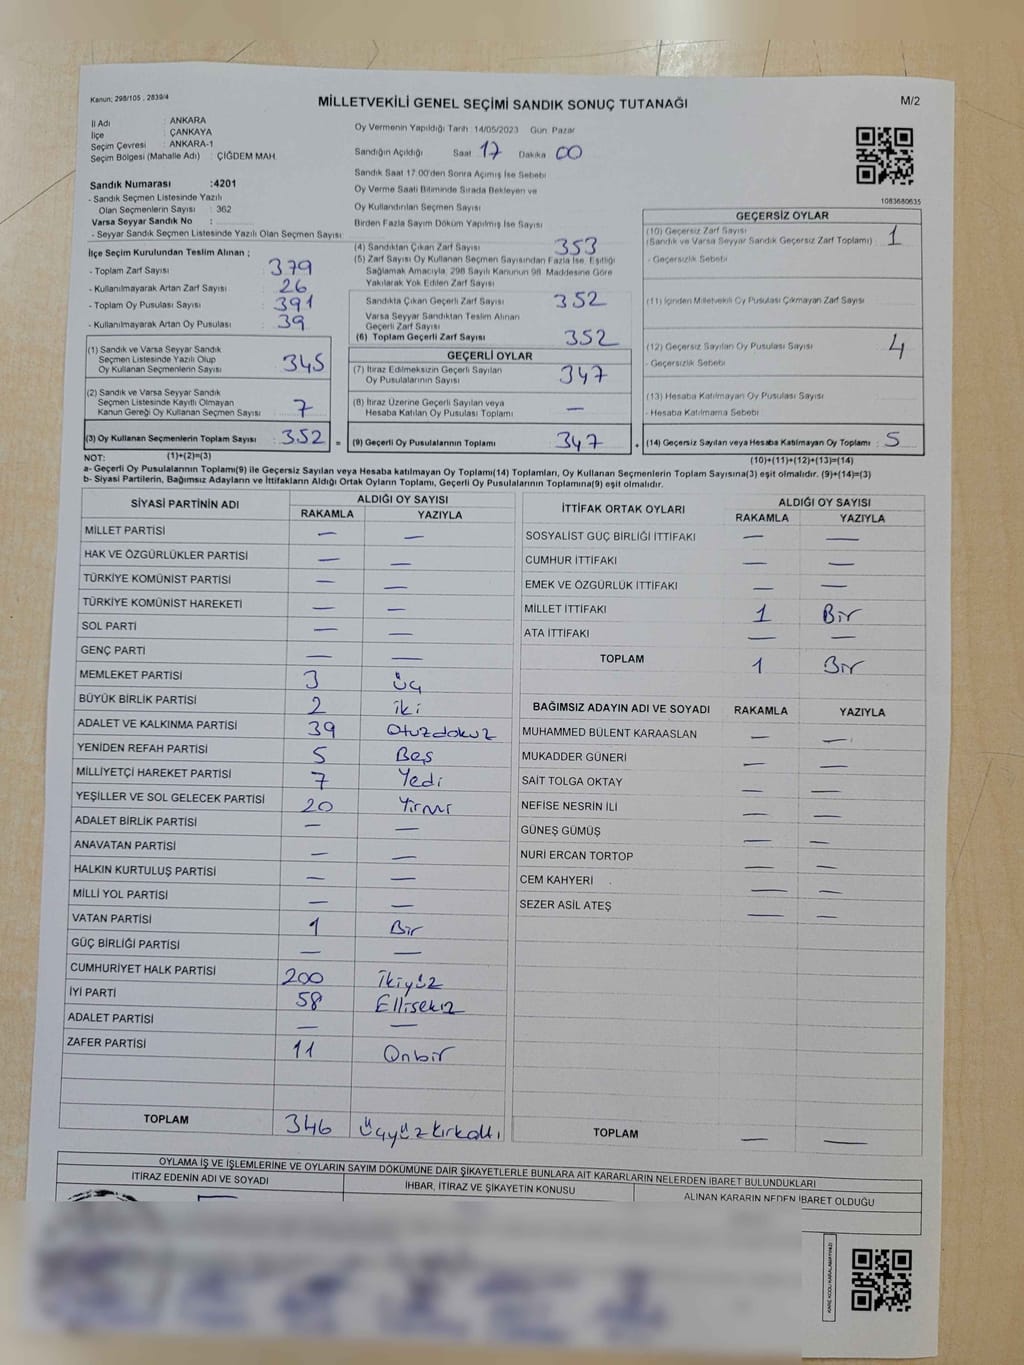 Kanun; 298/105 , 2839/4
MİLLETVEKİLİ GENEL SEÇİMİ SANDIK SONUÇ TUTANAĞI
M/2
İl Adı : ANKARA
İlçe : ÇANKAYA
Seçim Çevresi : ANKARA-1
Seçim Bölgesi (Mahalle Adı) : ÇİĞDEM MAH.
Sandık Numarası :4201
- Sandık Seçmen Listesinde Yazılı
Olan Seçmenlerin Sayısı : 362
Varsa Seyyar Sandık No :
- Seyyar Sandık Seçmen Listesinde Yazılı Olan Seçmen Sayısı
Oy Vermenin Yapıldığı Tarih 14/05/2023 Gün Pazar
Sandığın Açıldığı Saat 17 Dakika 00
Sandık Saat 17:00'den Sonra Açımış İse Sebebi
Oy Verme Saati Bitiminde Sırada Bekleyen ve
Oy Kullandırılan Seçmen Sayısı
Birden Fazla Sayım Döküm Yapılmış İse Sayısı
1083680635
İlçe Seçim Kurulundan Teslim Alınan ;
- Toplam Zarf Sayısı 379
- Kullanılmayarak Artan Zarf Sayısı 26
- Toplam Oy Pusulası Sayısı 391
- Kullanılmayarak Artan Oy Pusulası 39
(1) Sandık ve Varsa Seyyar Sandık
Seçmen Listesinde Yazılı Olup
Oy Kullanan Seçmenlerin Sayısı 345
(2) Sandık ve Varsa Seyyar Sandık
Seçmen Listesinde Kayıtlı Olmayan
Kanun Gereği Oy Kullanan Seçmen Sayısı 7
(3) Oy Kullanan Seçmenlerin Toplam Sayısı : 352 =
(1)+(2)=(3)
(4) Sandıktan Çıkan Zarf Sayısı 353
(5) Zarf Sayısı Oy Kullanan Seçmen Sayısından Fazla İse, Eşitliği
Sağlamak Amacıyla, 298 Sayılı Kanunun 98. Maddesine Göre
Yakılarak Yok Edilen Zarf Sayısı
Sandıkta Çıkan Geçerli Zarf Sayısı 352
Varsa Seyyar Sandıktan Teslim Alınan
Geçerli Zarf Sayısı
(6) Toplam Geçerli Zarf Sayısı 352
GEÇERLİ OYLAR
(7) İtiraz Edilmeksizin Geçerli Sayılan
Oy Pusulalarının Sayısı 347
(8) İtiraz Üzerine Geçerli Sayılan veya
Hesaba Katılan Oy Pusulası Toplamı —
(9) Geçerli Oy Pusulalarının Toplamı 347 +
GEÇERSİZ OYLAR
(10) Geçersiz Zarf Sayısı
(Sandık ve Varsa Seyyar Sandık Geçersiz Zarf Toplamı) : 1
- Geçersizlik Sebebi
(11) İçinden Milletvekili Oy Pusulası Çıkmayan Zarf Sayısı
(12) Geçersiz Sayılan Oy Pusulası Sayısı 4
- Geçersizlik Sebebi
(13) Hesaba Katılmayan Oy Pusulası Sayısı
- Hesaba Katılmama Sebebi
(14) Geçersiz Sayılan veya Hesaba Katılmayan Oy Toplamı : 5
(10)+(11)+(12)+(13)=(14)
NOT:
a- Geçerli Oy Pusulalarının Toplamı(9) ile Geçersiz Sayılan veya Hesaba katılmayan Oy Toplamı(14) Toplamları, Oy Kullanan Seçmenlerin Toplam Sayısına(3) eşit olmalıdır. (9)+(14)=(3)
b- Siyasi Partilerin, Bağımsız Adayların ve İttifakların Aldığı Ortak Oyların Toplamı, Geçerli Oy Pusulalarının Toplamına(9) eşit olmalıdır.
SİYASİ PARTİNİN ADI ALDIĞI OY SAYISI
RAKAMLA YAZIYLA
MİLLET PARTİSİ — —
HAK VE ÖZGÜRLÜKLER PARTİSİ — —
TÜRKİYE KOMÜNİST PARTİSİ — —
TÜRKİYE KOMÜNİST HAREKETİ — —
SOL PARTİ — —
GENÇ PARTİ — —
MEMLEKET PARTİSİ 3 Üç
BÜYÜK BİRLİK PARTİSİ 2 iki
ADALET VE KALKINMA PARTİSİ 39 Otuzdokuz
YENİDEN REFAH PARTİSİ 5 Beş
MİLLİYETÇİ HAREKET PARTİSİ 7 Yedi
YEŞİLLER VE SOL GELECEK PARTİSİ 20 Yirmi
ADALET BİRLİK PARTİSİ — —
ANAVATAN PARTİSİ — —
HALKIN KURTULUŞ PARTİSİ — —
MİLLİ YOL PARTİSİ — —
VATAN PARTİSİ 1 Bir
GÜÇ BİRLİĞİ PARTİSİ — —
CUMHURİYET HALK PARTİSİ 200 İkiyüz
İYİ PARTİ 58 Ellisekiz
ADALET PARTİSİ — —
ZAFER PARTİSİ 11 Onbir
TOPLAM 346 Üçyüzkırkaltı
İTTİFAK ORTAK OYLARI ALDIĞI OY SAYISI
RAKAMLA YAZIYLA
SOSYALİST GÜÇ BİRLİĞİ İTTİFAKI — —
CUMHUR İTTİFAKI — —
EMEK VE ÖZGÜRLÜK İTTİFAKI — —
MİLLET İTTİFAKI 1 Bir
ATA İTTİFAKI — —
TOPLAM 1 Bir
BAĞIMSIZ ADAYIN ADI VE SOYADI RAKAMLA YAZIYLA
MUHAMMED BÜLENT KARAASLAN — —
MUKADDER GÜNERİ — —
SAİT TOLGA OKTAY — —
NEFİSE NESRİN İLİ — —
GÜNEŞ GÜMÜŞ — —
NURİ ERCAN TORTOP — —
CEM KAHYERİ — —
SEZER ASİL ATEŞ — —
TOPLAM — —
OYLAMA İŞ VE İŞLEMLERİNE VE OYLARIN SAYIM DÖKÜMÜNE DAİR ŞİKAYETLERLE BUNLARA AİT KARARLARIN NELERDEN İBARET BULUNDUKLARI
İTİRAZ EDENİN ADI VE SOYADI İHBAR, İTİRAZ VE ŞİKAYETİN KONUSU ALINAN KARARIN NEDEN İBARET OLDUĞU
KARE KODU KARALAMAYINIZ!